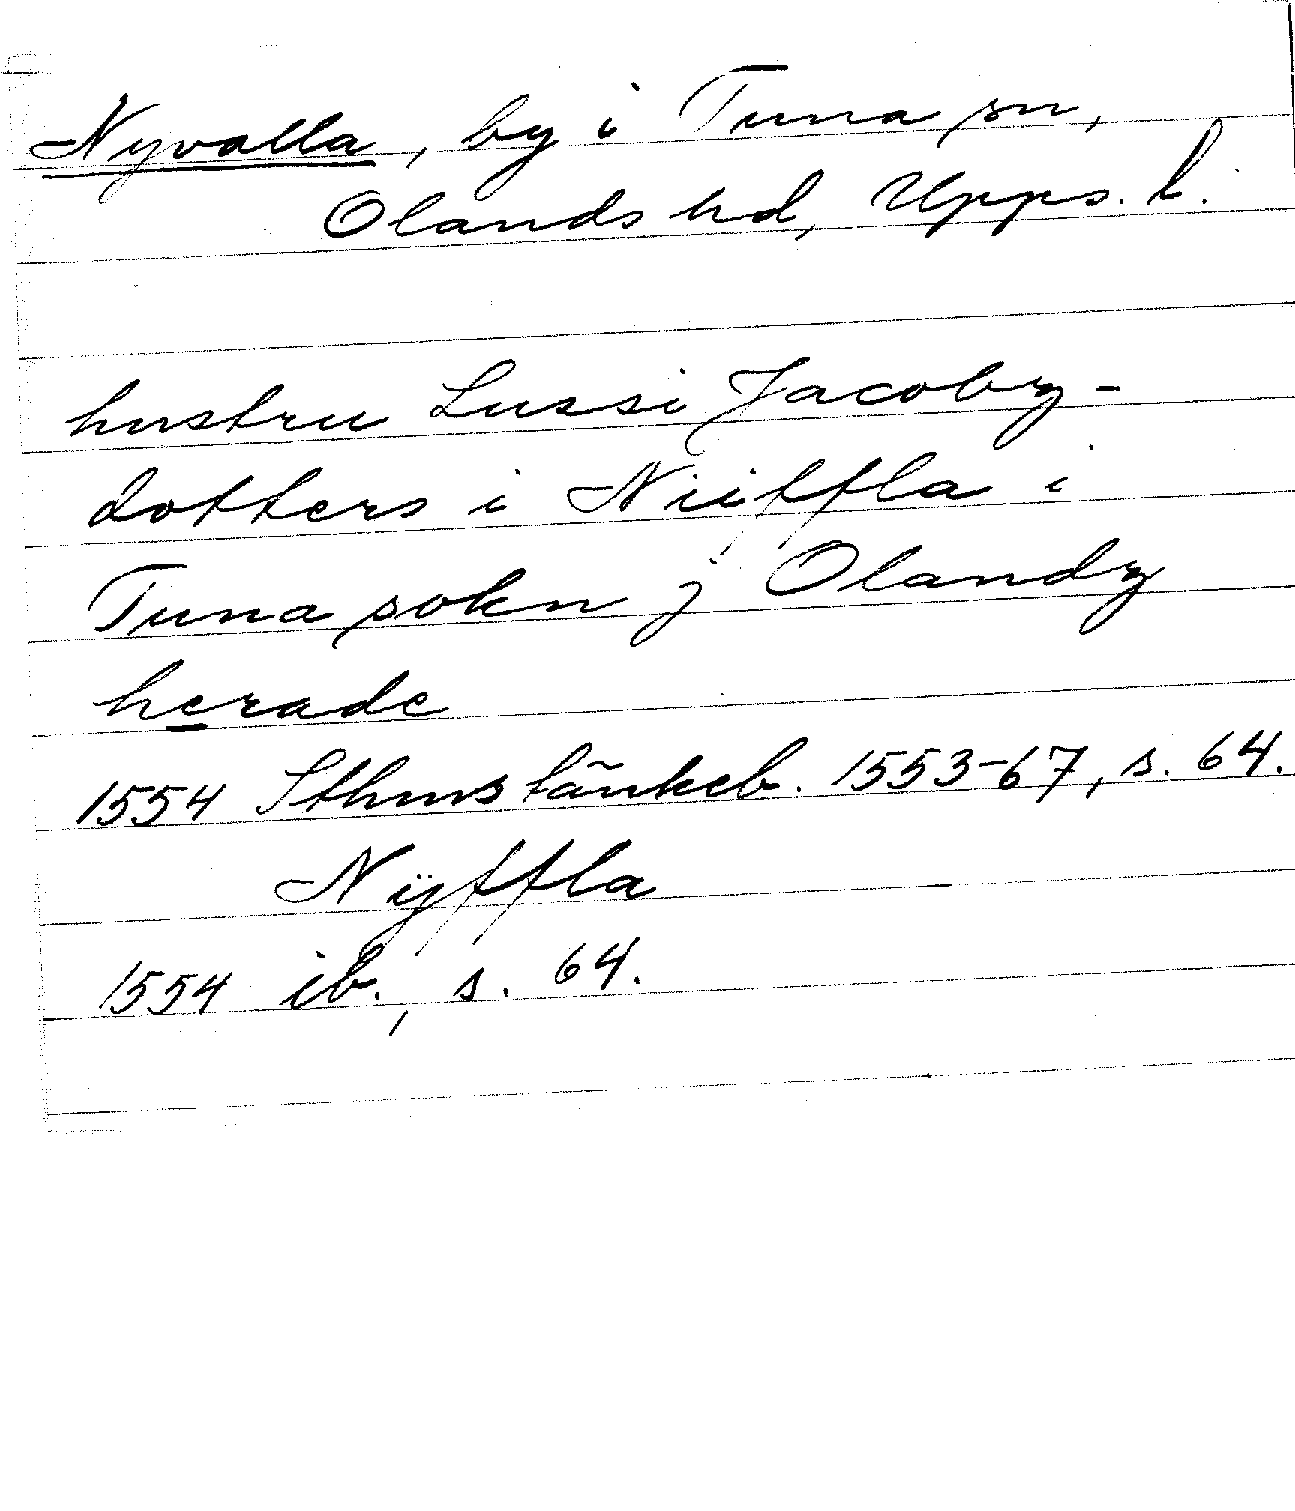 Nyvalla, by i Tuna sn,
Olands hd, Upps. l.
hustru Lussi Jacobz-
dotters i Niiffla i
Tuna sokn j Olandz
herade
1554 Sthms tänkeb. 1553-67, s. 64.
Nÿffla
1554 ib., s. 64.